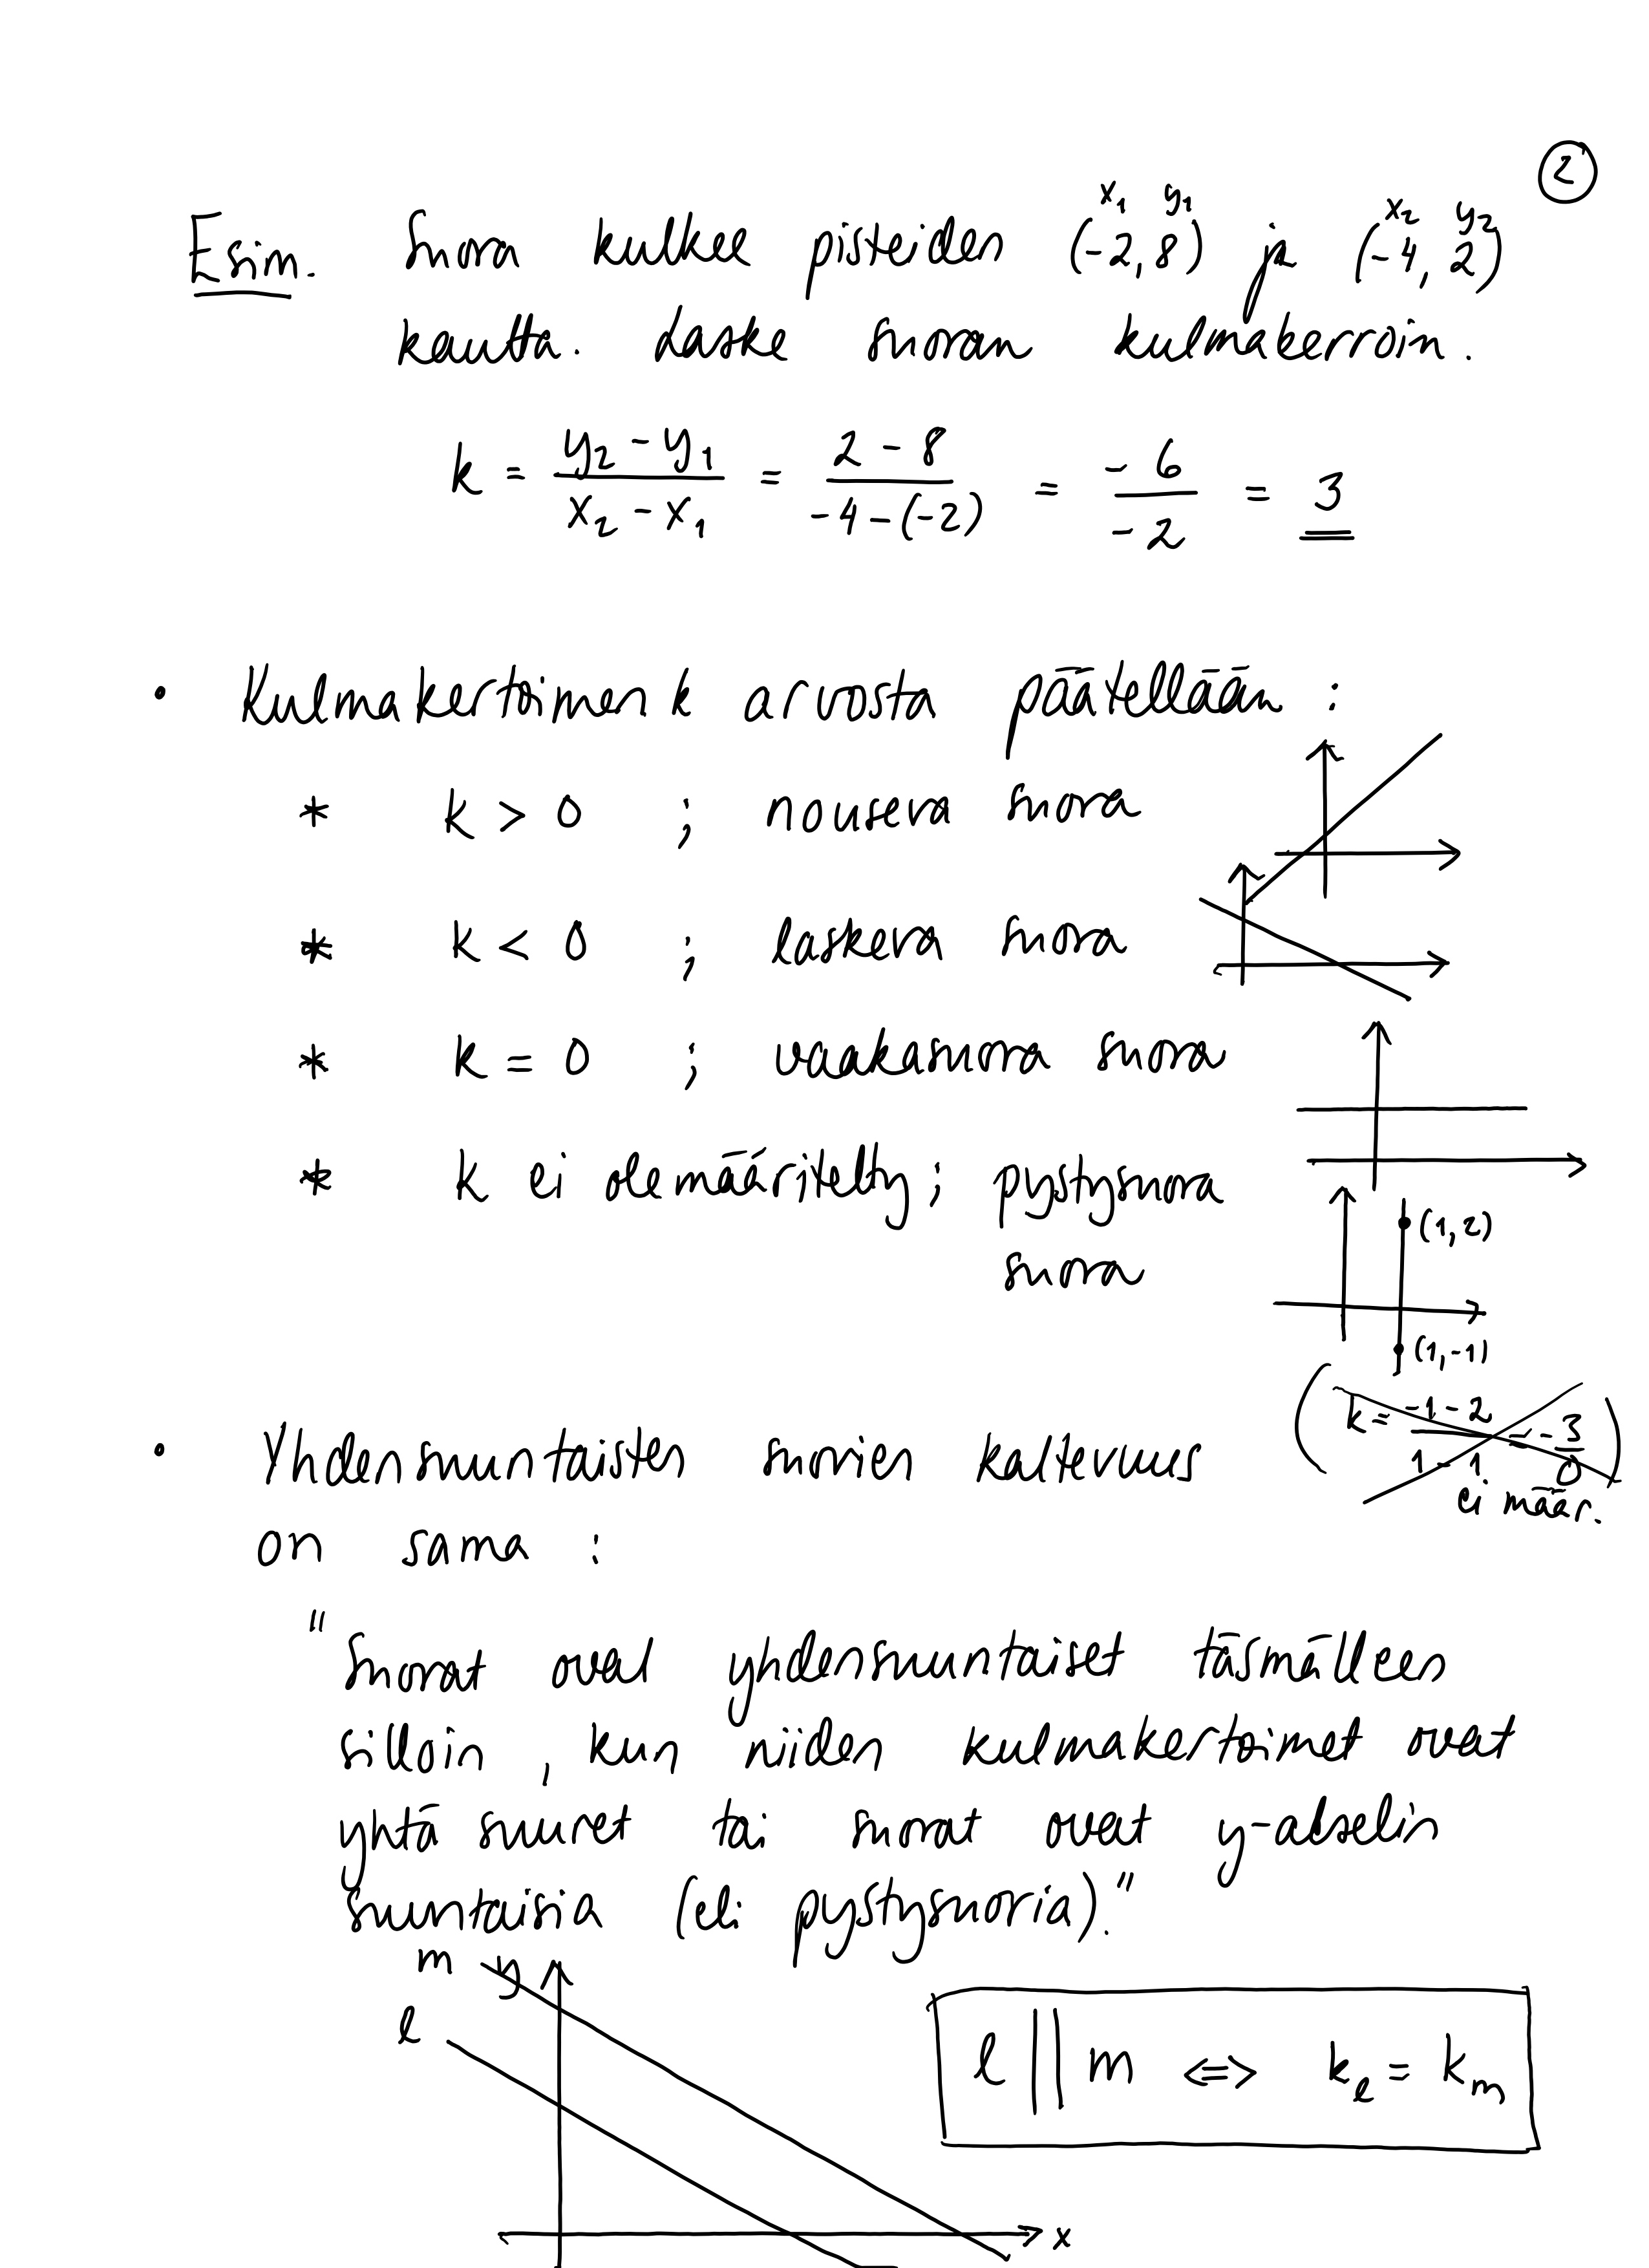 2
x₁ y₁ x₂ y₂
Esim. Suora kulkee pisteiden (-2, 8) ja (-4, 2)
kautta. Laske suoran kulmakerroin.
k = (y₂ - y₁)/(x₂ - x₁) = (2 - 8)/(-4 - (-2)) = (-6)/(-2) = 3
• Kulmakertoimen k arvosta päätellään :
* k > 0 ; nouseva suora
* k < 0 ; laskeva suora
* k = 0 ; vaakasuora suora
* k ei ole määritelty ; pystysuora
suora
(1, 2)
(1, -1)
(k = (-1 - 2)/(1 - 1) = -3/0)
ei määr.
• Yhdensuuntaisten suorien kaltevuus
on sama :
"Suorat ovat yhdensuuntaiset täsmälleen
silloin, kun niiden kulmakertoimet ovat
yhtä suuret tai suorat ovat y-akselin
suuntaisia (eli pystysuoria)."
m y
l
l || m ⇔ kₗ = kₘ
x